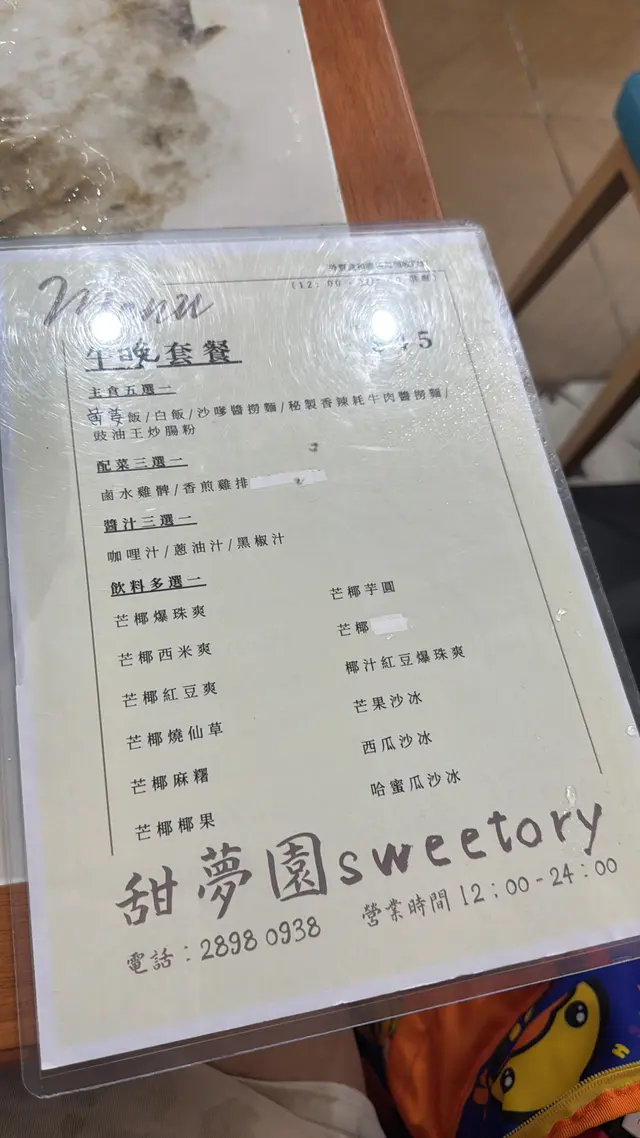 Menu
午晚套餐
主食五選一
飯/白飯/沙嗲醬撈麵/秘製香辣牦牛肉醬撈麵/
豉油王炒腸粉
配菜三選一
鹵水雞髀/香煎雞排
醬汁三選一
咖哩汁/蔥油汁/黑椒汁
飲料多選一
芒椰爆珠爽
芒椰西米爽
芒椰紅豆爽
芒椰燒仙草
芒椰麻糬
芒椰椰果
芒椰芋圓
芒椰
椰汁紅豆爆珠爽
芒果沙冰
西瓜沙冰
哈蜜瓜沙冰
甜夢園sweetory
電話：2898 0938 營業時間 12：00-24：00